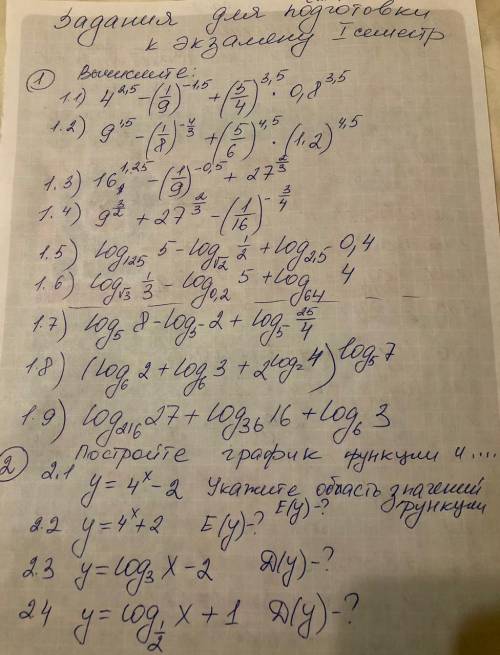 Задания для подготовки
к экзамену I семестр
① Вычислите:
1.1) 4^2,5 - (1/9)^-1,5 + (5/4)^3,5 · 0,8^3,5
1.2) 9^1,5 - (1/8)^-4/3 + (5/6)^4,5 · (1.2)^4,5
1.3) 16^1,25 - (1/9)^-0,5 + 27^2/3
1.4) 9^3/2 + 27^2/3 - (1/16)^-3/4
1.5) log_125 5 - log_√2 1/2 + log_2,5 0,4
1.6) log_√3 1/3 - log_0,2 5 + log_64 4
1.7) log_5 8 - log_5 2 + log_5 25/4
1.8) (log_6 2 + log_6 3 + 2^log_2 4)^log_5 7
1.9) log_216 27 + log_36 16 + log_6 3
② Постройте график функции и ....
2.1 y = 4^x - 2 Укажите область значений функции
E(y)-?
2.2 y = 4^x + 2 E(y)-?
2.3 y = log_3 x - 2 D(y)-?
2.4 y = log_1/2 x + 1 D(y)-?